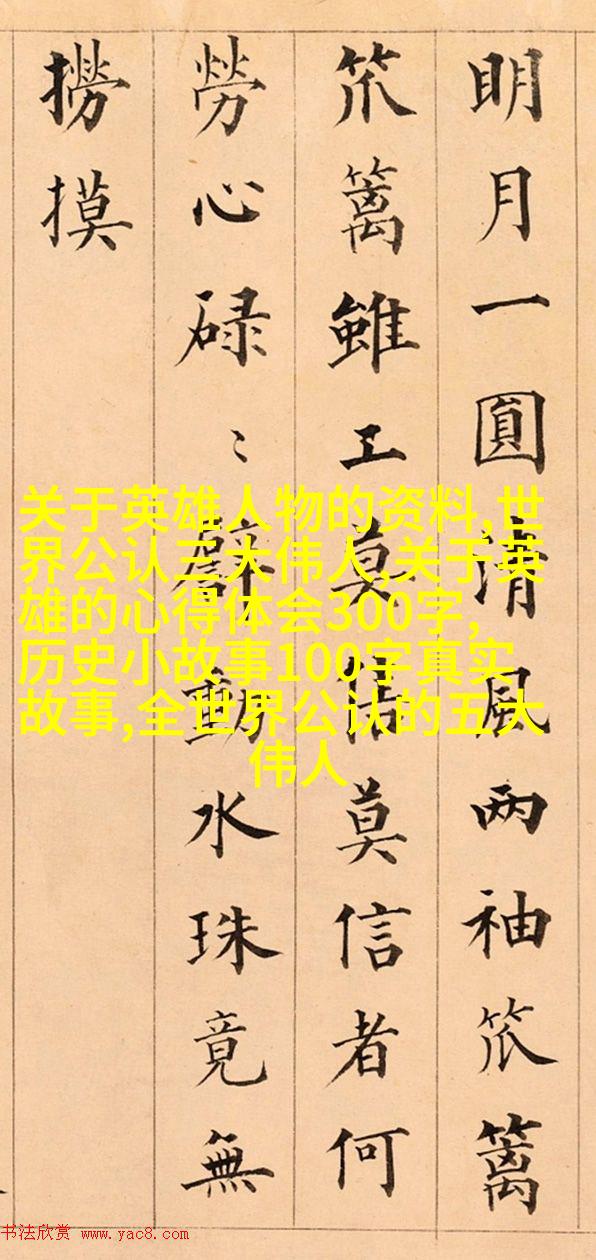 明月一圓清風两袖笊篱
笊篱雖工莫信莫信者何
勞心碌〻動水珠竟無
撈摸
关于英雄人物的资料,世
界公认三大伟人,关于英
雄的心得体会300字,
历史小故事100字真实
故事,全世界公认的五大
伟人
书法欣赏 www.yac8.com